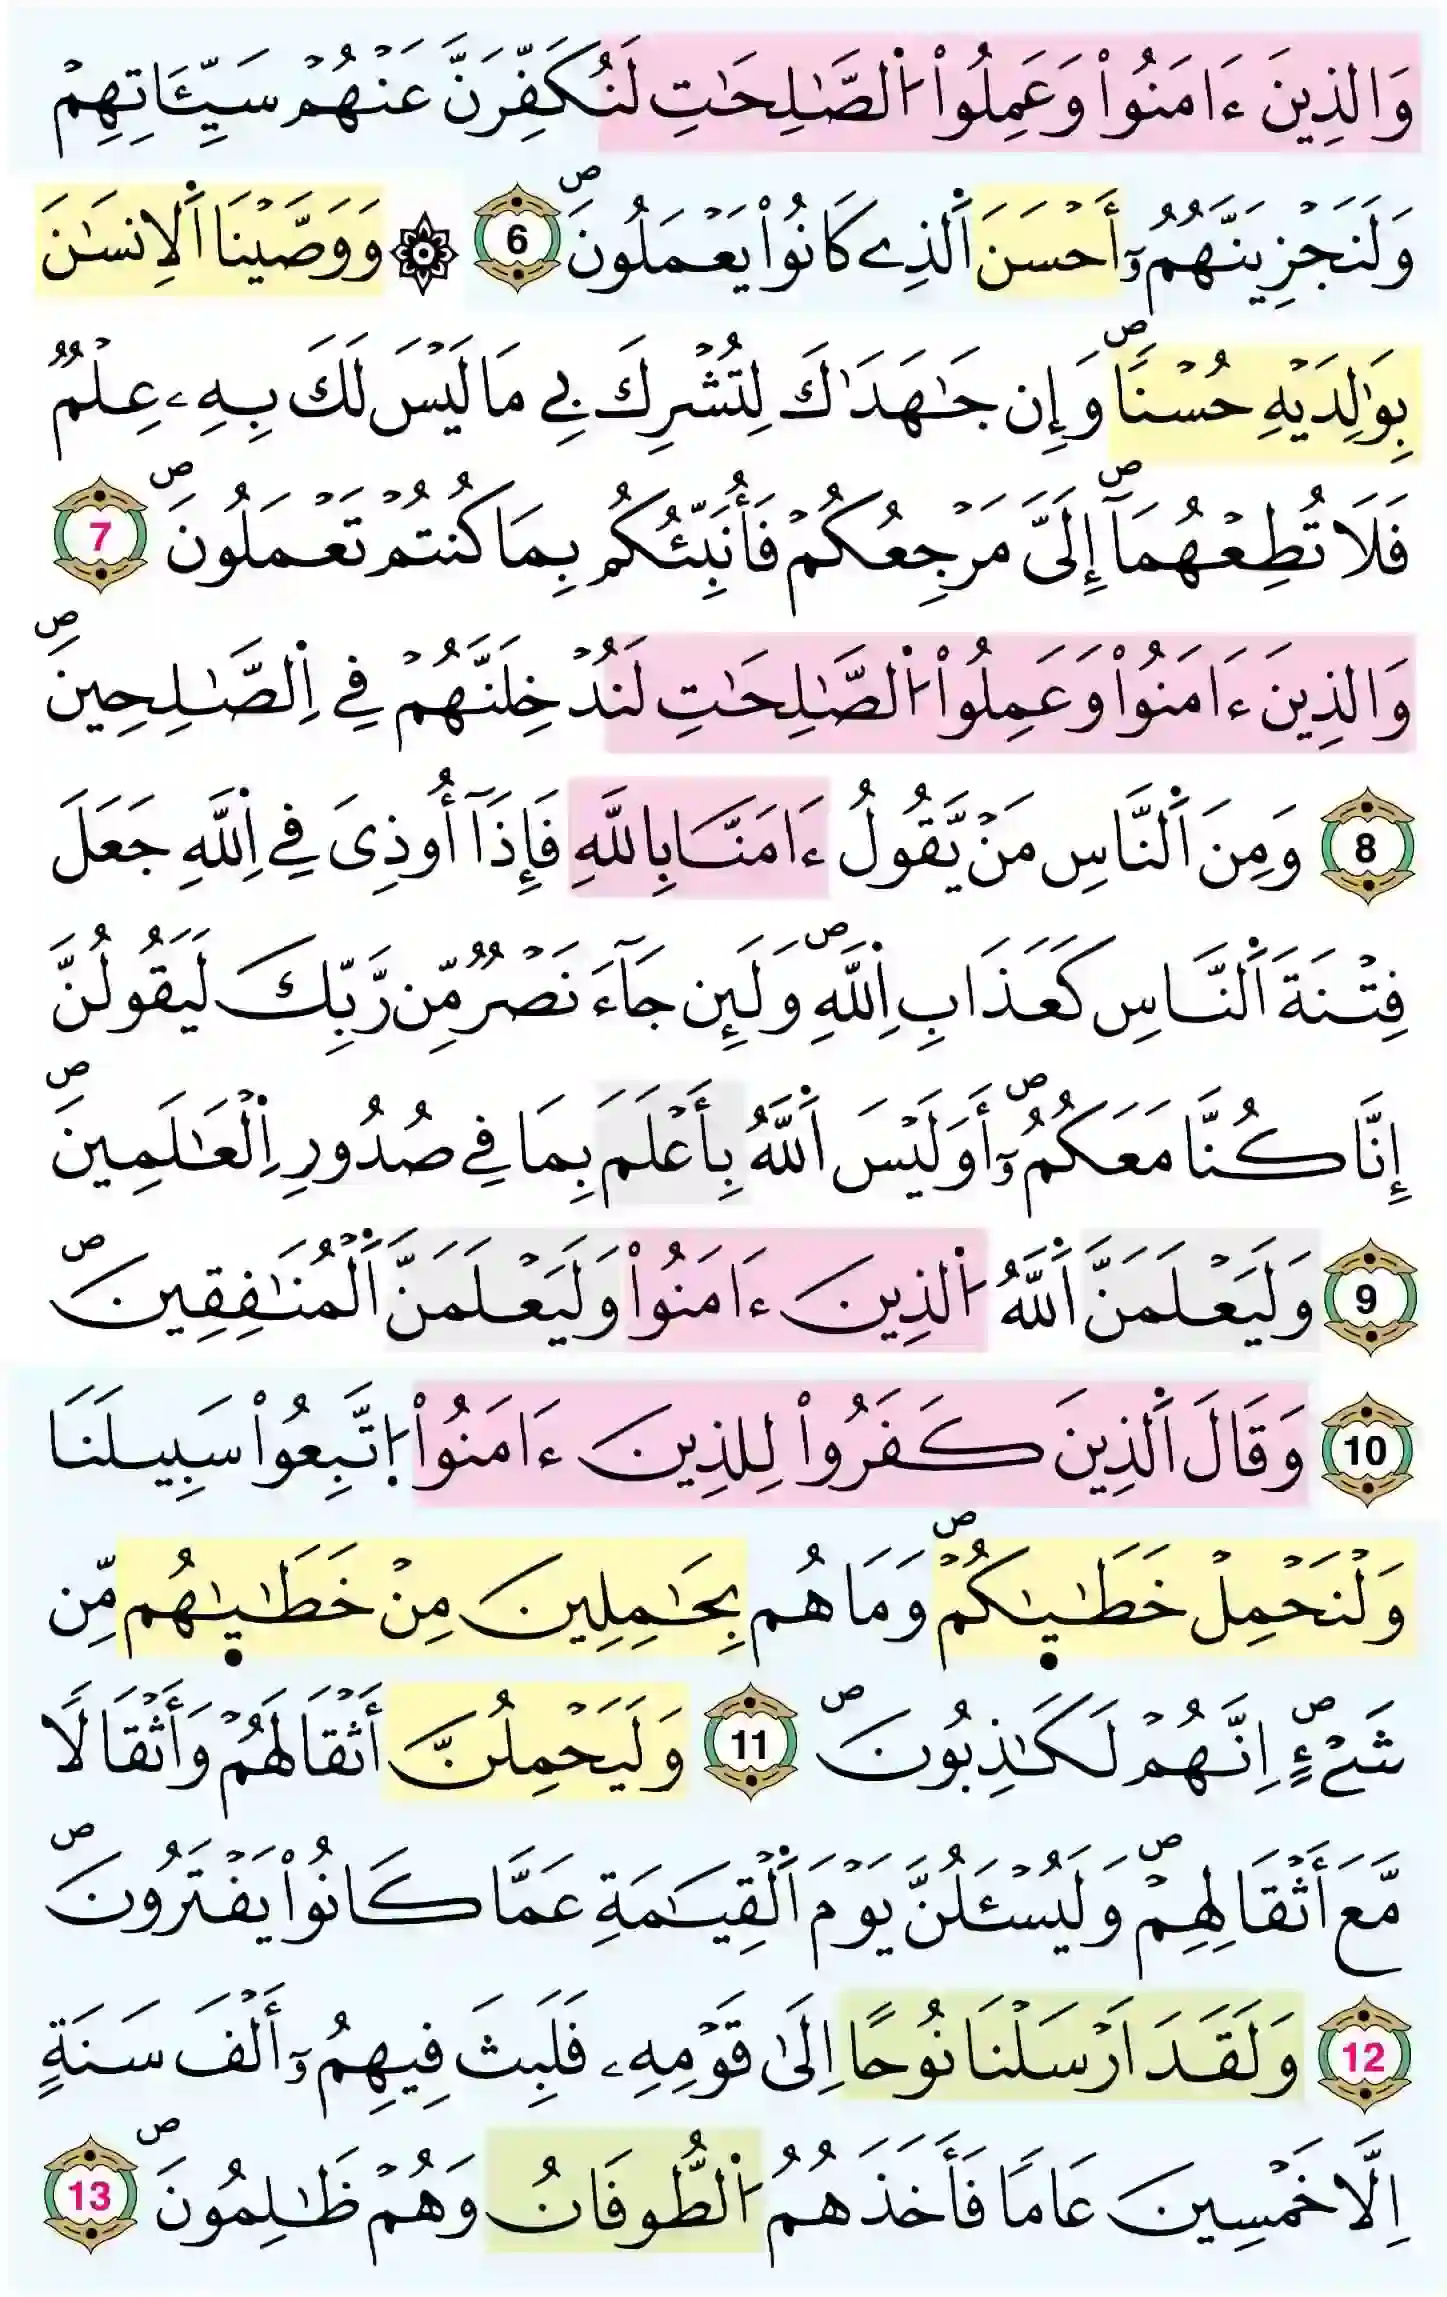 وَالذِينَ ءَامَنُواْ وَعَمِلُواْ اُ۬لصَّٰلِحَٰتِ لَنُكَفِّرَنَّ عَنْهُمْ سَيِّـَٔاتِهِمْ
وَلَنَجْزِيَنَّهُمُۥٓ أَحْسَنَ اَ۬لذِے كَانُواْ يَعْمَلُونَۖ 6 ۞ وَوَصَّيْنَا اَ۬لِانسَٰنَ
بِوَٰلِدَيْهِ حُسْناٗۖ وَإِن جَٰهَدَٰكَ لِتُشْرِكَ بِے مَا لَيْسَ لَكَ بِهِۦ عِلْمٞ
فَلَا تُطِعْهُمَآۖ إِلَيَّ مَرْجِعُكُمْ فَأُنَبِّئُكُم بِمَا كُنتُمْ تَعْمَلُونَۖ 7
وَالذِينَ ءَامَنُواْ وَعَمِلُواْ اُ۬لصَّٰلِحَٰتِ لَنُدْخِلَنَّهُمْ فِے اِ۬لصَّٰلِحِينَۖ
8 وَمِنَ اَ۬لنَّاسِ مَنْ يَّقُولُ ءَامَنَّا بِاللَّهِ فَإِذَآ أُوذِيَ فِے اِ۬للَّهِ جَعَلَ
فِتْنَةَ اَ۬لنَّاسِ كَعَذَابِ اِ۬للَّهِۖ وَلَئِن جَآءَ نَصْرٞ مِّن رَّبِّكَ لَيَقُولُنَّ
إِنَّا كُنَّا مَعَكُمُۥٓۖ أَوَلَيْسَ اَ۬للَّهُ بِأَعْلَمَ بِمَا فِے صُدُورِ اِ۬لْعَٰلَمِينَۖ
9 وَلَيَعْلَمَنَّ اَ۬للَّهُ اُ۬لذِينَ ءَامَنُواْ وَلَيَعْلَمَنَّ اَ۬لْمُنَٰفِقِينَۖ
10 وَقَالَ اَ۬لذِينَ كَفَرُواْ لِلذِينَ ءَامَنُواْ اُ۪تَّبِعُواْ سَبِيلَنَا
وَلْنَحْمِلْ خَطَٰيَٰكُمْۖ وَمَا هُم بِحَٰمِلِينَ مِنْ خَطَٰيَٰهُم مِّن
شَےْءٍۖ اِنَّهُمْ لَكَٰذِبُونَۖ 11 وَلَيَحْمِلُنَّ أَثْقَالَهُمْ وَأَثْقَالاٗ
مَّعَ أَثْقَالِهِمْۖ وَلَيُسْـَٔلُنَّ يَوْمَ اَ۬لْقِيَٰمَةِ عَمَّا كَانُواْ يَفْتَرُونَۖ
12 وَلَقَدَ اَرْسَلْنَا نُوحاً اِلَىٰ قَوْمِهِۦ فَلَبِثَ فِيهِمُۥٓ أَلْفَ سَنَةٍ
اِلَّا خَمْسِينَ عَاماٗ فَأَخَذَهُمُ اُ۬لطُّوفَانُ وَهُمْ ظَٰلِمُونَۖ 13